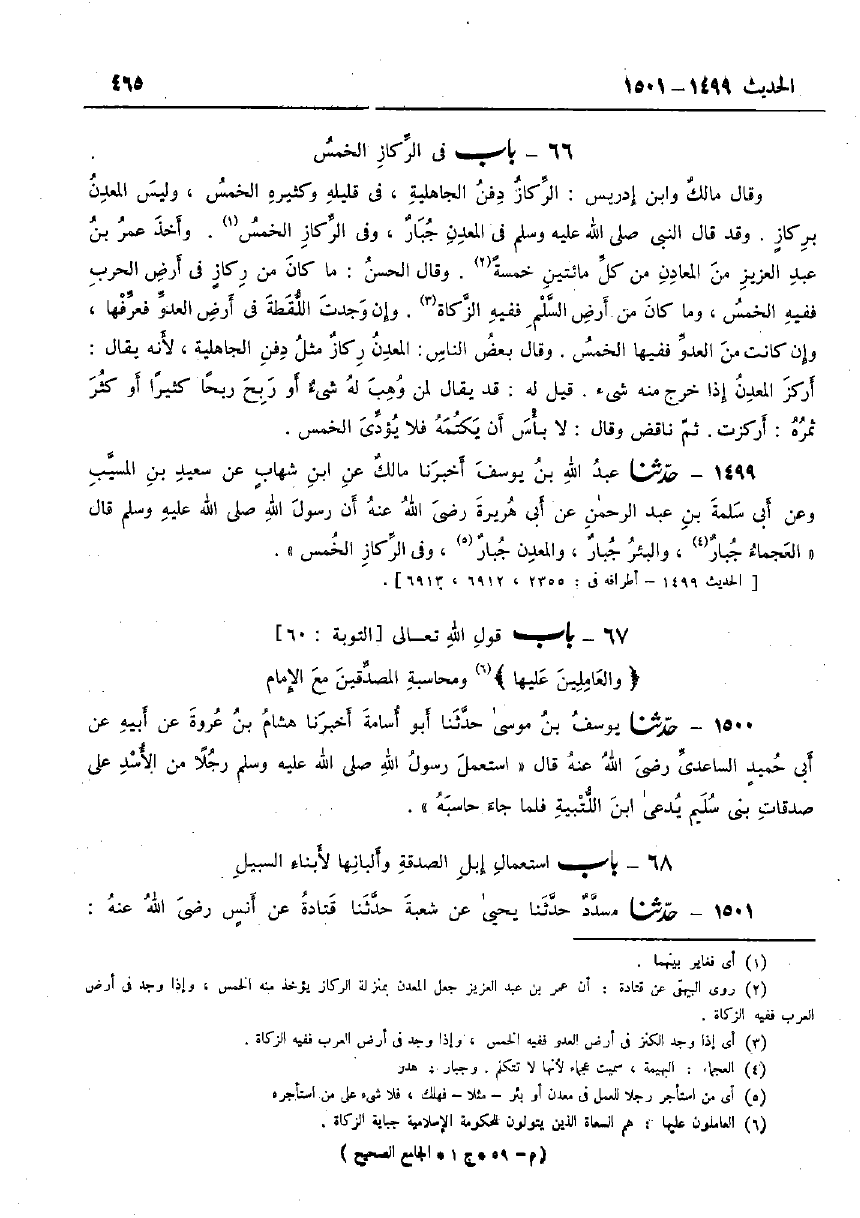 الحديث ١٤٩٩ – ١٥٠١ ٤٦٥
٦٦ – باب فى الرِّكازِ الخمسُ
وقال مالكٌ وابن إدريس : الرِّكازُ دِفنُ الجاهلية ، فى قليلهِ وكثيرهِ الخمسُ ، وليسَ المعدِنُ
بركازٍ . وقد قال النبى صلى الله عليه وسلم فى المعدِنِ جُبَارٌ ، وفى الرِّكازِ الخمسُ (١) . وأخذَ عمرُ بنُ
عبدِ العزيزِ منَ المعادِنِ من كلِّ مائتينِ خمسةً (٢) . وقال الحسنُ : ما كانَ من رِكازٍ فى أرضِ الحربِ
ففيهِ الخمسُ ، وما كانَ من أرضِ السَّلْمِ ففيهِ الزَّكاة (٣) . وإن وَجدتَ اللُّقَطةَ فى أرضِ العدوِّ فعرِّفْها ،
وإن كانت منَ العدوِّ ففيها الخمسُ . وقال بعضُ الناس: المعدِنُ رِكازٌ مثلُ دِفنِ الجاهلية ، لأنه يقال :
أركزَ المعدِنُ إذا خرج منه شىء . قيل له : قد يقال لمن وُهِبَ لهُ شىءٌ أو رَبِحَ ربحًا كثيرًا أو كثُرَ
ثمرُهُ : أركزت . ثمّ ناقض وقال : لا بأْسَ أن يَكتُمَهُ فلا يُؤدِّىَ الخمس .
١٤٩٩ – حدّثنا عبدُ اللهِ بنُ يوسفَ أخبرَنا مالكٌ عنِ ابنِ شهابٍ عن سعيدِ بنِ المسيَّبِ
وعن أبى سَلمةَ بنِ عبد الرحمٰنِ عن أبى هُريرةَ رضىَ اللهُ عنهُ أن رسولَ اللهِ صلى الله عليهِ وسلم قال
« العَجماءُ جُبارٌ (٤) ، والبئرُ جُبارٌ ، والمعدن جُبارٌ (٥) ، وفى الرِّكازِ الخُمس » .
[ الحديث ١٤٩٩ – أطرافه فى : ٢٣٥٥ ، ٦٩١٢ ، ٦٩١٣] .
٦٧ – باب قولِ اللهِ تعـالى [التوبة : ٦٠]
﴿ والعَامِلِينَ عَليها ﴾ (٦) ومحاسبةِ المصدِّقينَ معَ الإمام
١٥٠٠ – حدّثنا يوسفُ بنُ موسىٰ حدَّثَنا أبو أُسامةَ أخبرَنا هشامُ بنُ عُروةَ عن أبيهِ عن
أبى حُميدٍ الساعدىِّ رضىَ اللهُ عنهُ قال « استعملَ رسولُ اللهِ صلى الله عليه وسلم رجُلًا من الأُسْدِ على
صدقاتِ بنى سُلَيمٍ يُدعىٰ ابنَ اللُّتْبيةِ فلما جاءَ حاسبَهُ » .
٦٨ – باب استعمالِ إبلِ الصدقةِ وألبانِها لأبناءِ السبيل
١٥٠١ – حدّثنا مسدَّدٌ حدَّثَنا يحيىٰ عن شعبةَ حدَّثَنا قَتادةُ عن أنسٍ رضىَ اللهُ عنهُ :
(١) أى فغاير بينهما .
(٢) روى البيهقى عن قتادة : أن عمر بن عبد العزيز جعل المعدن بمنزلة الركاز يؤخذ منه الخمس ، وإذا وجد فى أرض
العرب ففيه الزكاة .
(٣) أى إذا وجد الكنز فى أرض العدو ففيه الخمس ، وإذا وجد فى أرض العرب ففيه الزكاة .
(٤) العجماء : البهيمة ، سميت عجماء لأنها لا تتكلم . وجبار : هدر
(٥) أى من استأجر رجلا للعمل فى معدن أو بئر – مثلا – فهلك ، فلا شىء على من استأجره
(٦) العاملون عليها : هم السعاة الذين يتولون للحكومة الإسلامية جباية الزكاة .
(م – ٥٩ * ج ١ * الجامع الصحيح )